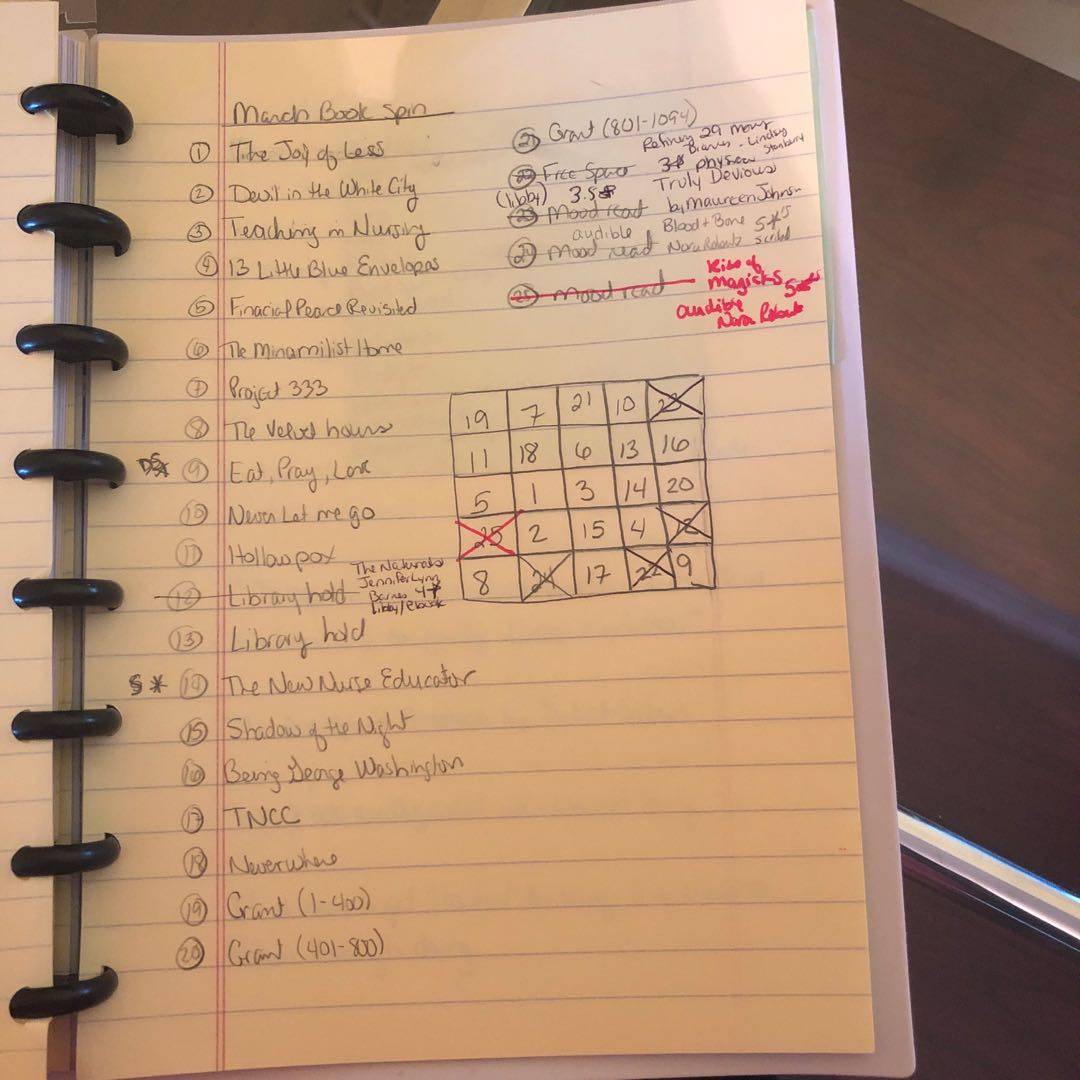 March Book Spin
① The Joy of Less
② Devil in the White City
③ Teaching in Nursing
④ 13 Little Blue Envelopes
⑤ Finacial Peace Revisited
⑥ The Minamilist Home
⑦ Project 333
⑧ The Velvet hours
⑨ Eat, Pray, Love
⑩ Never Let me go
⑪ Hollowpox
⑫ Library hold The Naturals
Jennifer Lynn
Barnes 4*
Libby/ebook
⑬ Library hold
* ⑭ The New Nurse Educator
⑮ Shadow of the Night
⑯ Being George Washington
⑰ TNCC
⑱ Neverwhere
⑲ Grant (1-400)
⑳ Grant (401-800)
㉑ Grant (801-1094)
Refinery 29 money
Diaries - Lindsey
Stanberry
㉒ Free Space 3* physical
(libby) 3.5* Truly Devious
㉓ Mood read by Maureen Johnson
audible Blood + Bone 5*s
㉔ Mood read Nora Roberts scribd
㉕ Mood read Rise of
Magicks 5*s
audible
Nora Roberts
19 7 21 10 23
11 18 6 13 16
5 1 3 14 20
25 2 15 4 12
8 24 17 22 9